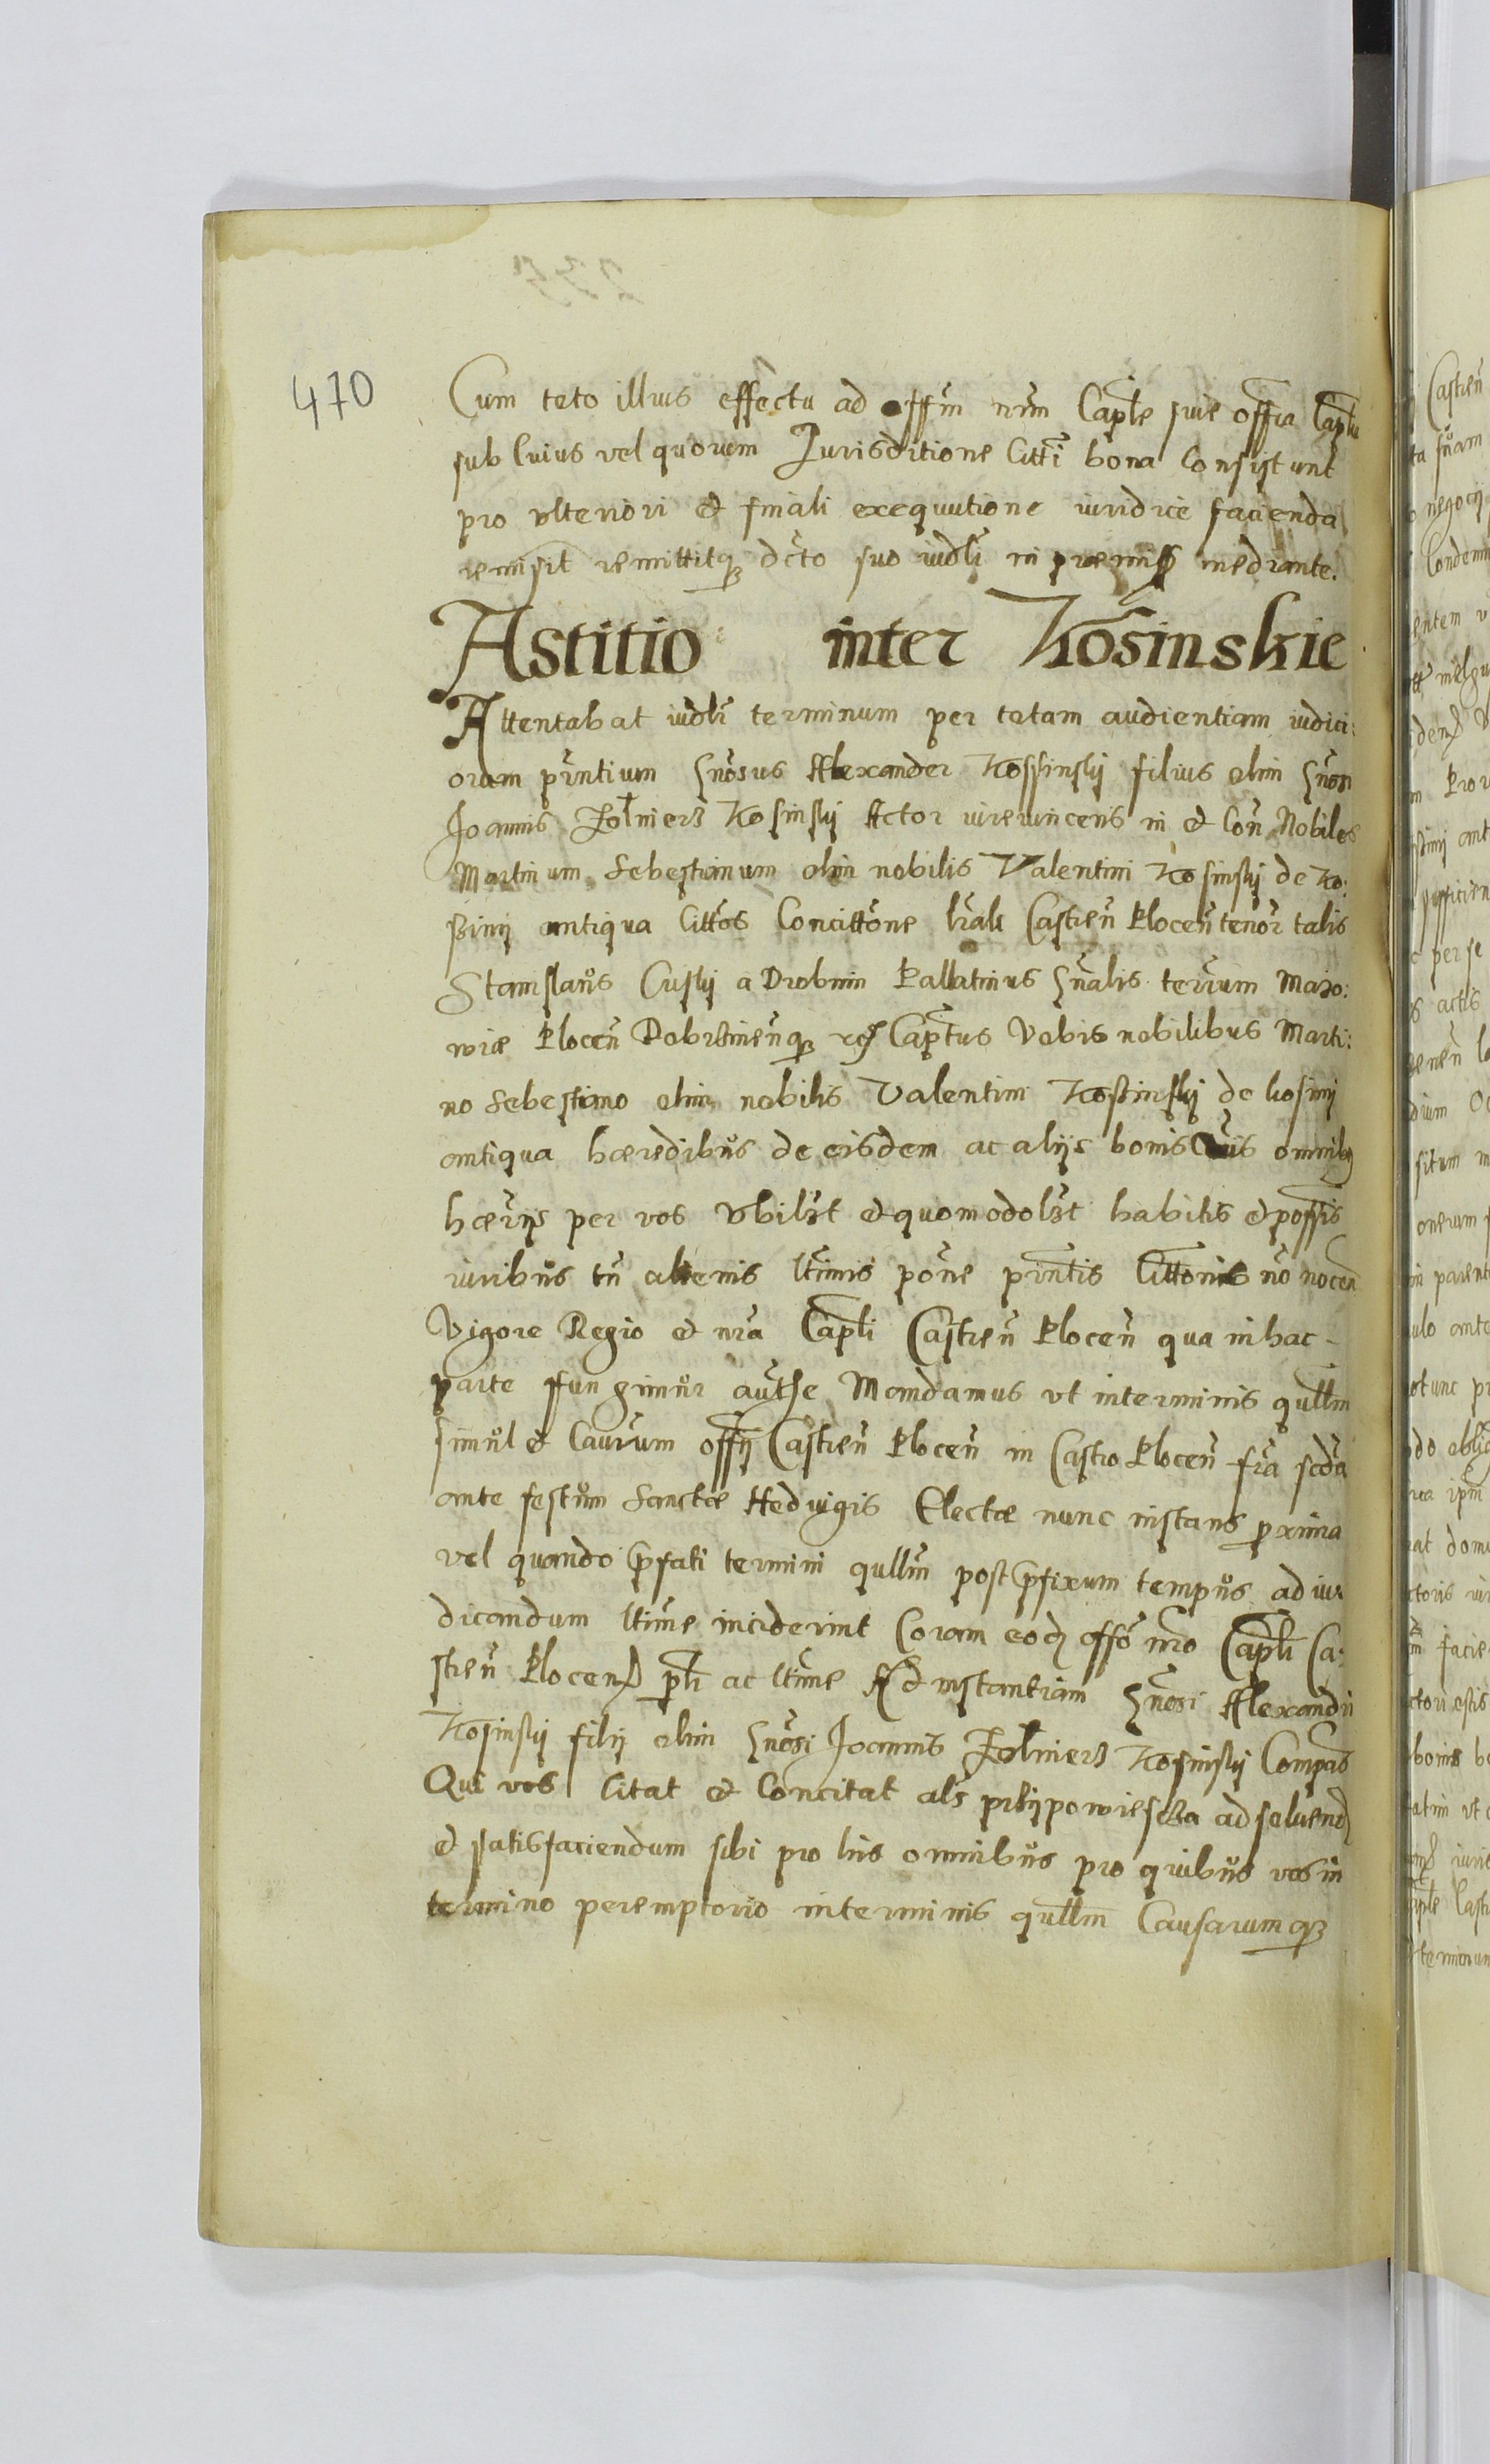 470
Cum toto illius effectu ad offm nrm Caple sue offia Captu
sub Cuius vel quorum Jurisditione Citti bona Consistunt
pro vlteriori et finali exequutione iuridice facienda
remisit remittitq dcto suo iudli in praemiss mediante.
Astitio inter Kosinskie
Attentabat iudlr terminum per totam audientiam iudici:
orum pntium Gnosus Alexander Kossinskij filius olim Gnosi
Joannis Zolnierz Kosinskij Actor iurevincens in et Con Nobiles
Martinum Sebestianum olim nobilis Valentini Kosinskij de Ko:
ssinij antiqua Cittos Concittone lrali Castren Plocen tenor talis
Stanislaus Criskij a Drobnin Pallatinus Gnalis terrum Mazo:
wiae Plocen Dobrzinenq Captus Vobis nobilibus Marti:
no Sebestiano olim nobilis Valentini Kossinskij de Kosinij
antiqua haeredibus de eisdem ac alijs bonis Vris omnibq
haerijs per vos Vbilzt et quomodolzt habitis et possis
iuribus tn alienis ltimis pone printis Cittonis no nocen
Vigore Regio et nra Capli Castren Plocen qua in hac -
parte ffungimur authe Mandamus vt in terminis qullm
simul et Caurum offij Castren Plocen in Castro Plocen fra scda
ante festum Sanctae Hedvigis Electae nunc instans pxima
vel quando pfati termini qullm post pfixum tempus ad iu
dicandum ltime inciderint Coram eod offo nro Capli Ca:
stren Plocen plr ac ltime Ad instantiam Gnosi Alexandri
Kosinskij filij olim Gnosi Joannis Zolnierz Kosinskij Compas
Qui vos Citat et Concitat als przypowiescza ad soluend
et satisfaciendum sibi pro his omnibus pro quibus vos in
termino peremptorio in terminis qullm Causarumq